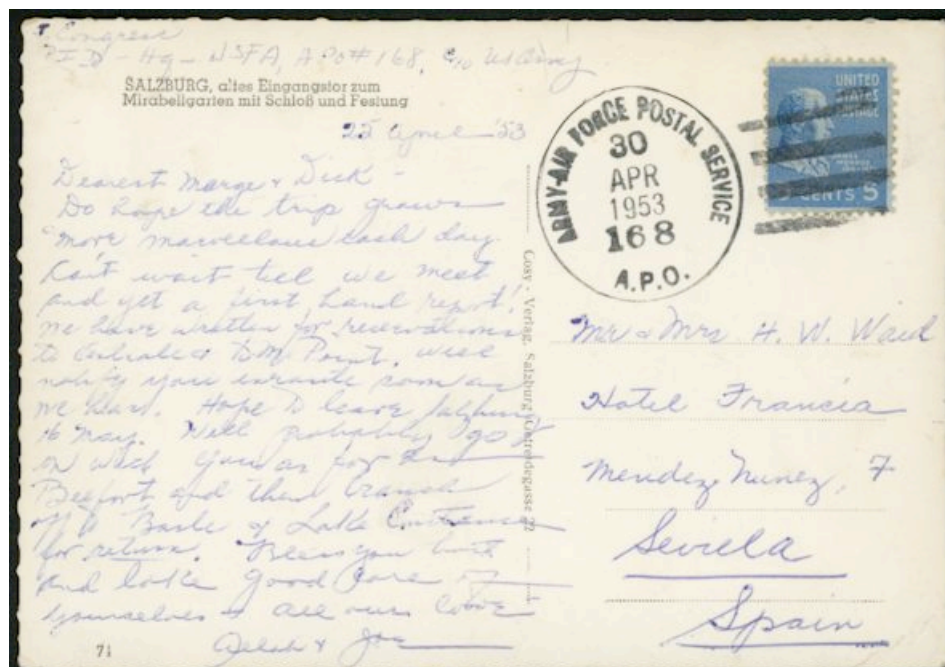 Congress
PID - Hq - USFA, APO # 168, c/o US Army
SALZBURG, altes Eingangstor zum
Mirabellgarten mit Schloß und Festung
25 April '53
Dearest Marge & Dick -
Do hope the trip grows
more marvellous each day.
Can't wait till we meet
and get a first hand report!
We have written for reservations
to & Point. Will
notify you enroute soon as
we hear. Hope to leave Salzburg
16 May. Will probably go
on with you as far as
Belfort and then branch
off to Basle & Lake Constance
for return. Bless you both
and take good care of
yourselves - all our love
& Joe
71
Cosy - Verlag, Salzburg, Getreidegasse 22
ARMY-AIR FORCE POSTAL SERVICE
30
APR
1953
168
A.P.O.
UNITED
STATES
POSTAGE
CENTS 5
Mr & Mrs H. W. Ward
Hotel Francia
Mendez Nunez, 7
Sevilla
Spain